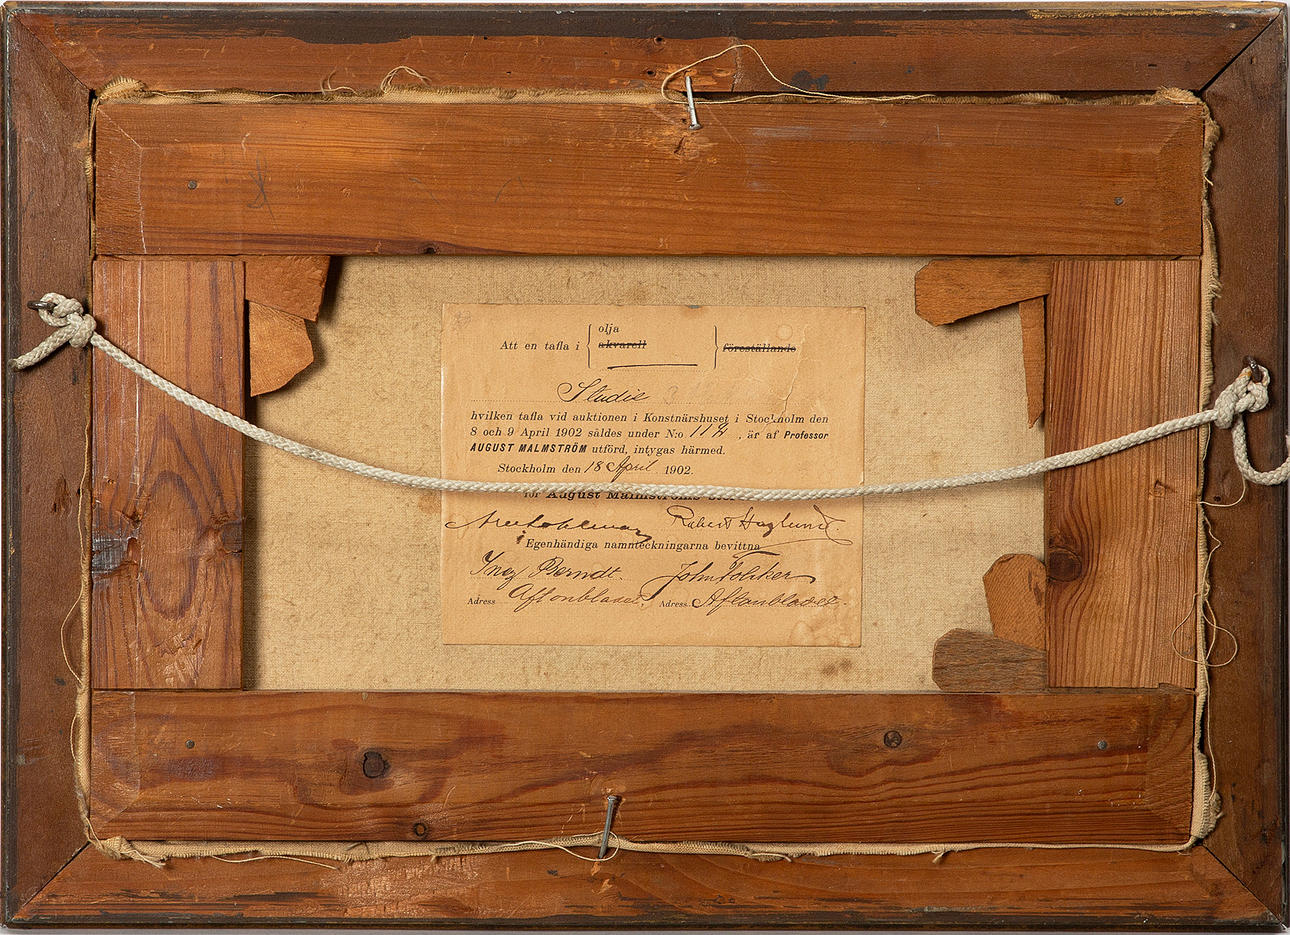 olja
Att en tafla i akvarell föreställande
Studie
hvilken tafla vid auktionen i Konstnärshuset i Stockholm den
8 och 9 April 1902 såldes under N:o 114, är af Professor
AUGUST MALMSTRÖM utförd, intygas härmed.
Stockholm den 18 April 1902.
för August Malmströms
Robert Haglund.
Egenhändiga namnteckningarna bevittna
Berndt. John
Adress Aftonbladet. Adress Aftonbladet.